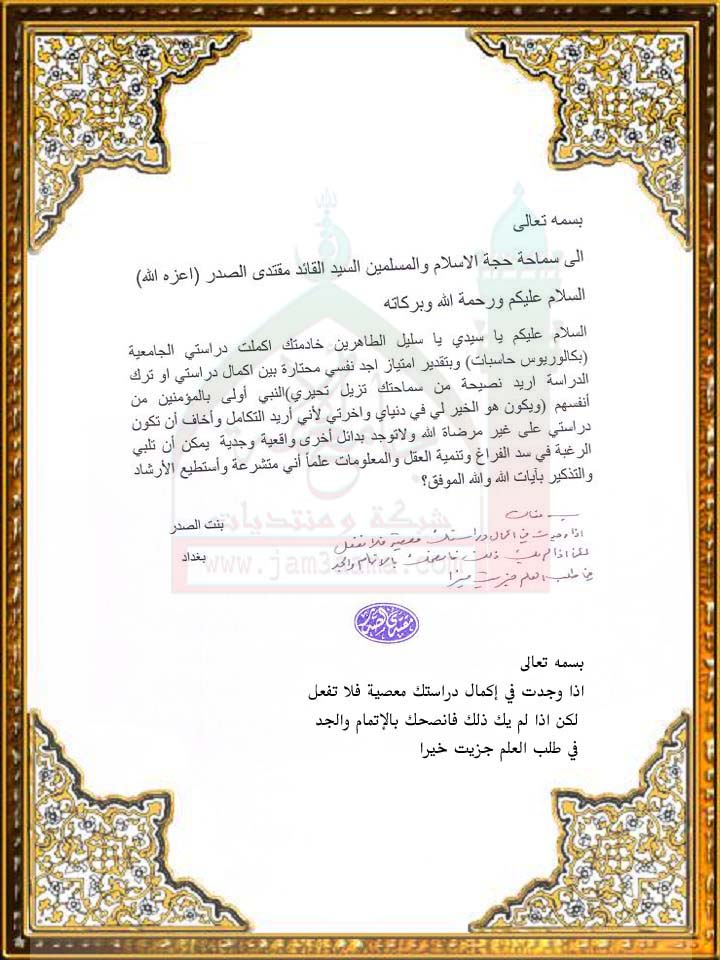 بسمه تعالى
الى سماحة حجة الاسلام والمسلمين السيد القائد مقتدى الصدر (اعزه الله)
السلام عليكم ورحمة الله وبركاته
السلام عليكم يا سيدي يا سليل الطاهرين خادمتك اكملت دراستي الجامعية
(بكالوريوس حاسبات) وبتقدير امتياز اجد نفسي محتارة بين اكمال دراستي او ترك
الدراسة اريد نصيحة من سماحتك تزيل تحيري)النبي أولى بالمؤمنين من
أنفسهم (ويكون هو الخير لي في دنياي واخرتي لأني أريد التكامل وأخاف أن تكون
دراستي على غير مرضاة الله ولاتوجد بدائل أخرى واقعية وجدية يمكن أن تلبي
الرغبة في سد الفراغ وتنمية العقل والمعلومات علماً أني متشرعة وأستطيع الأرشاد
والتذكير بآيات الله والله الموفق؟
بنت الصدر
بغداد
بسمه تعالى
اذا وجدت في اكمال دراستك معصية فلا تفعل
لكن اذا لم يك ذلك فانصحك بالاتمام والجد
في طلب العلم جزيت خيرا
شبكة ومنتديات
www.jam3aama.com
مقتدى الصدر
بسمه تعالى
اذا وجدت في إكمال دراستك معصية فلا تفعل
لكن اذا لم يك ذلك فانصحك بالإتمام والجد
في طلب العلم جزيت خيرا